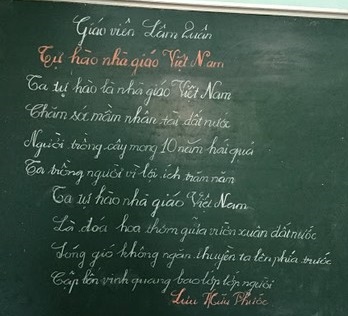 Giáo viên Lâm Quân
Tự hào nhà giáo Việt Nam
Ta tự hào là nhà giáo Việt Nam
Chăm sơ mầm nhân tài đất nước
Người trồng cây mong 10 năm hái quả
Ta trồng người vì lợi ích trăm năm
Ta tự hào nhà giáo Việt Nam
Là đoá hoa thơm giữa viên xuân đất nước
Sóng gió không ngăn thuyền ta lên phía trước
Cập bến vinh quang bao lớp lớp người
Lưu Hữu Phước